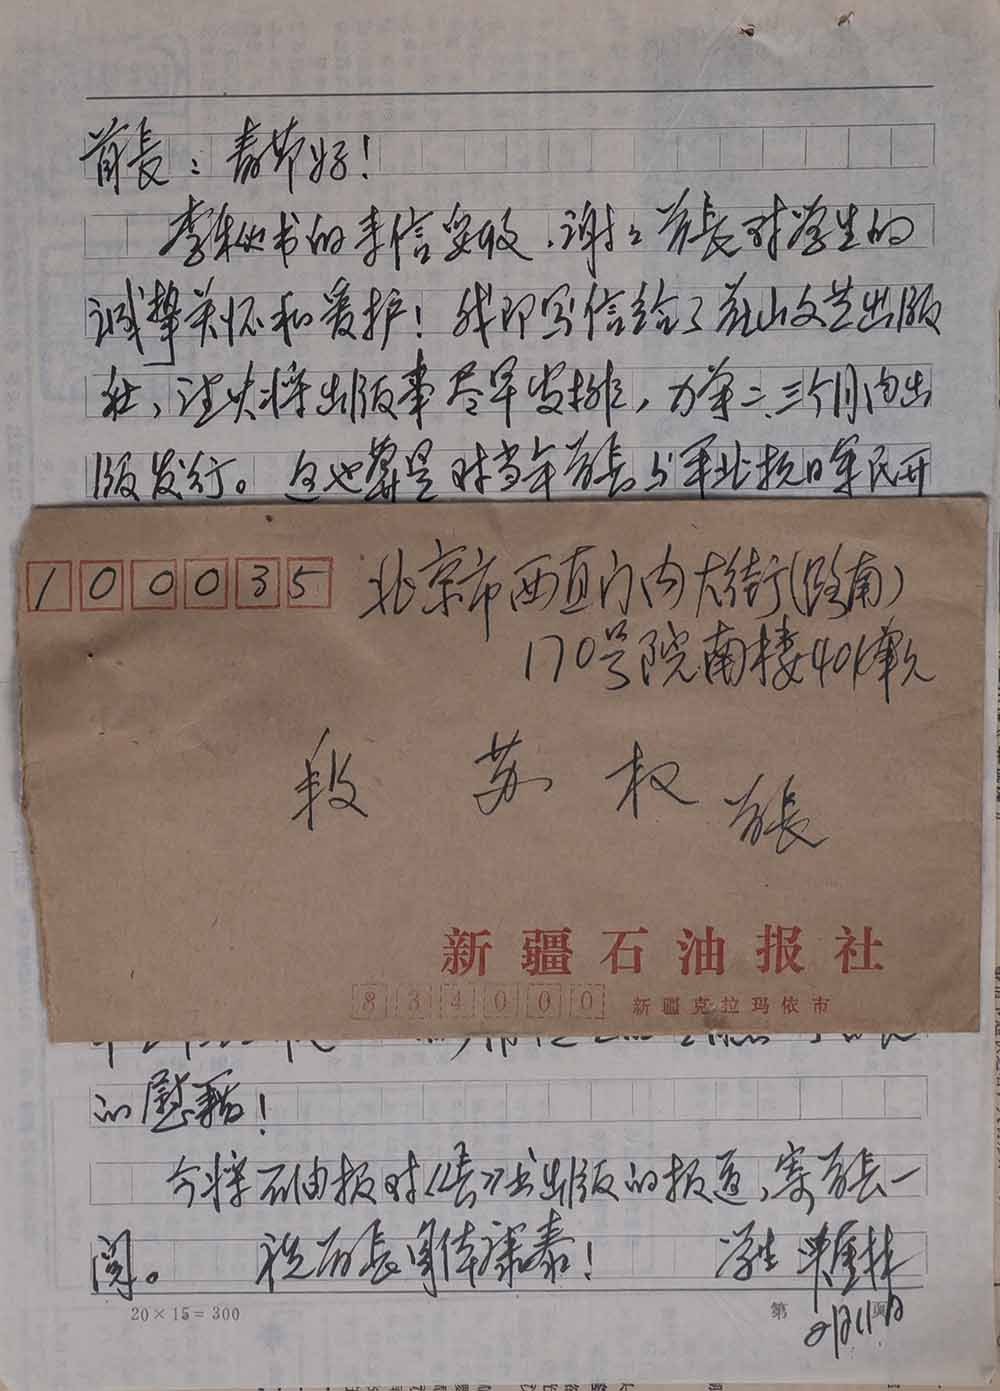 首長：春节好！
李秘书的来信安收，谢谢首長对学生的
诚挚关怀和爱护！我即写信给了花山文艺出版
社，望火将出版事尽早安排，力争二、三个月内出
版发行。这也算是对当年首長与军北抗日军民开
100035
北京市西直门内大街(路南)
170号院南楼401单元
段苏权首長
新疆石油报社
834000 新疆克拉玛依市
的慰藉！
今将石油报对《長》书出版的报道，寄首長一
阅。 祝首長身体康泰！ 学生
20×15=300 第 页
2月11日